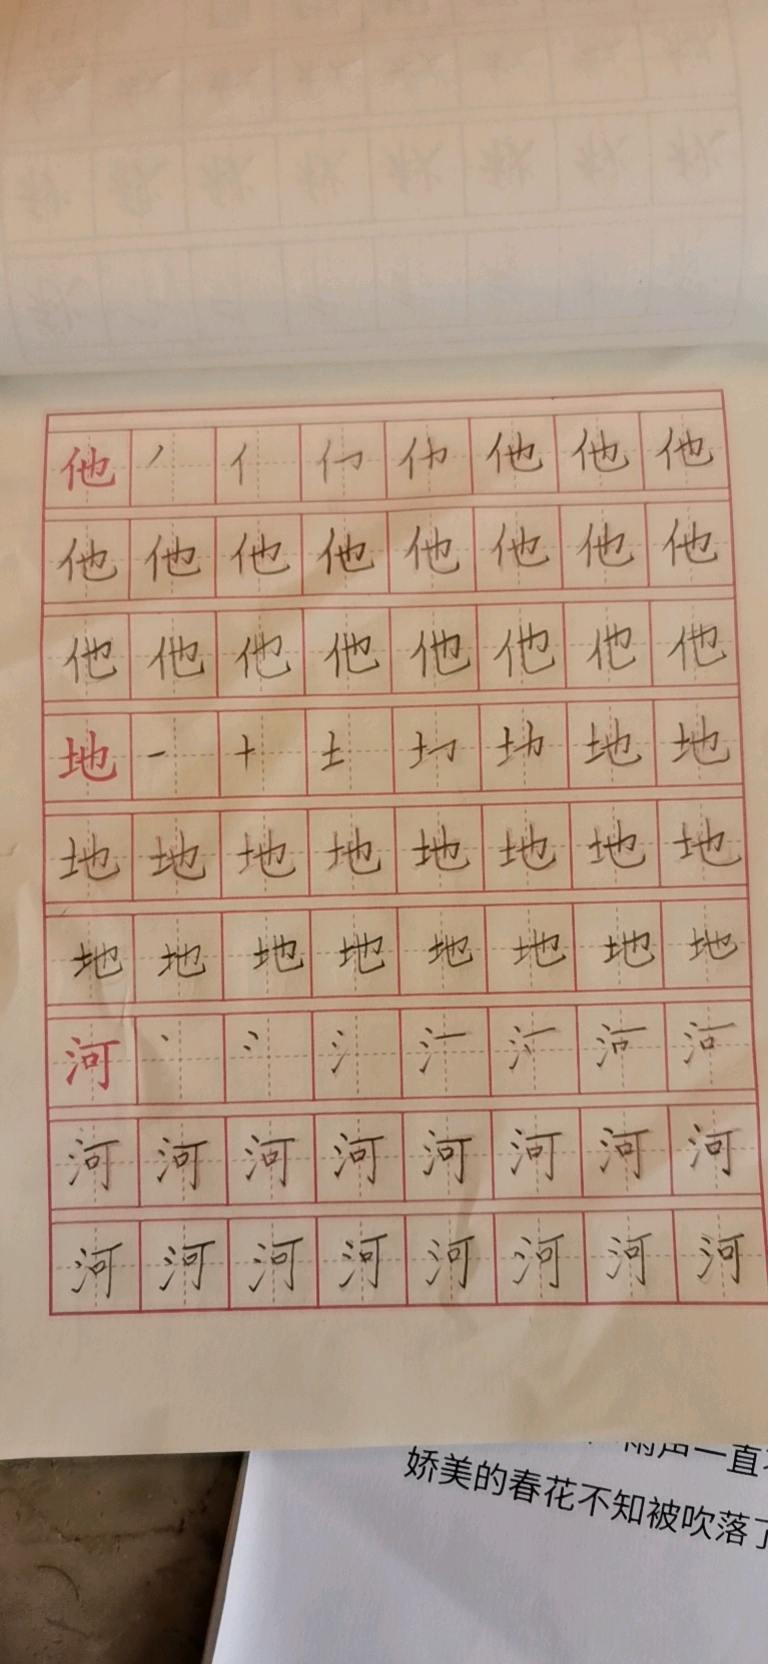 他 丿 亻 他 他 他
他 他 他 他 他 他 他 他
他 他 他 他 他 他 他 他
地 一 十 土 地 地
地 地 地 地 地 地 地 地
地 地 地 地 地 地 地 地
河 丶 冫 氵
河 河 河 河 河 河 河 河
河 河 河 河 河 河 河 河
雨声一直
娇美的春花不知被吹落了